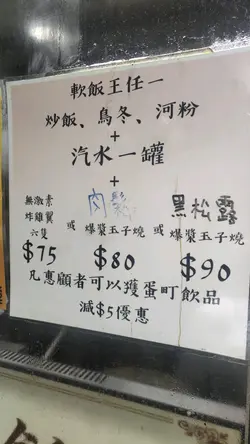 軟飯王任一
炒飯、烏冬、河粉
+
汽水一罐
+
無激素
炸雞翼
六隻
或
肉鬆
爆漿玉子燒
或
黑松露
爆漿玉子燒
$75
$80
$90
凡惠顧者可以獲蛋町飲品
減$5優惠